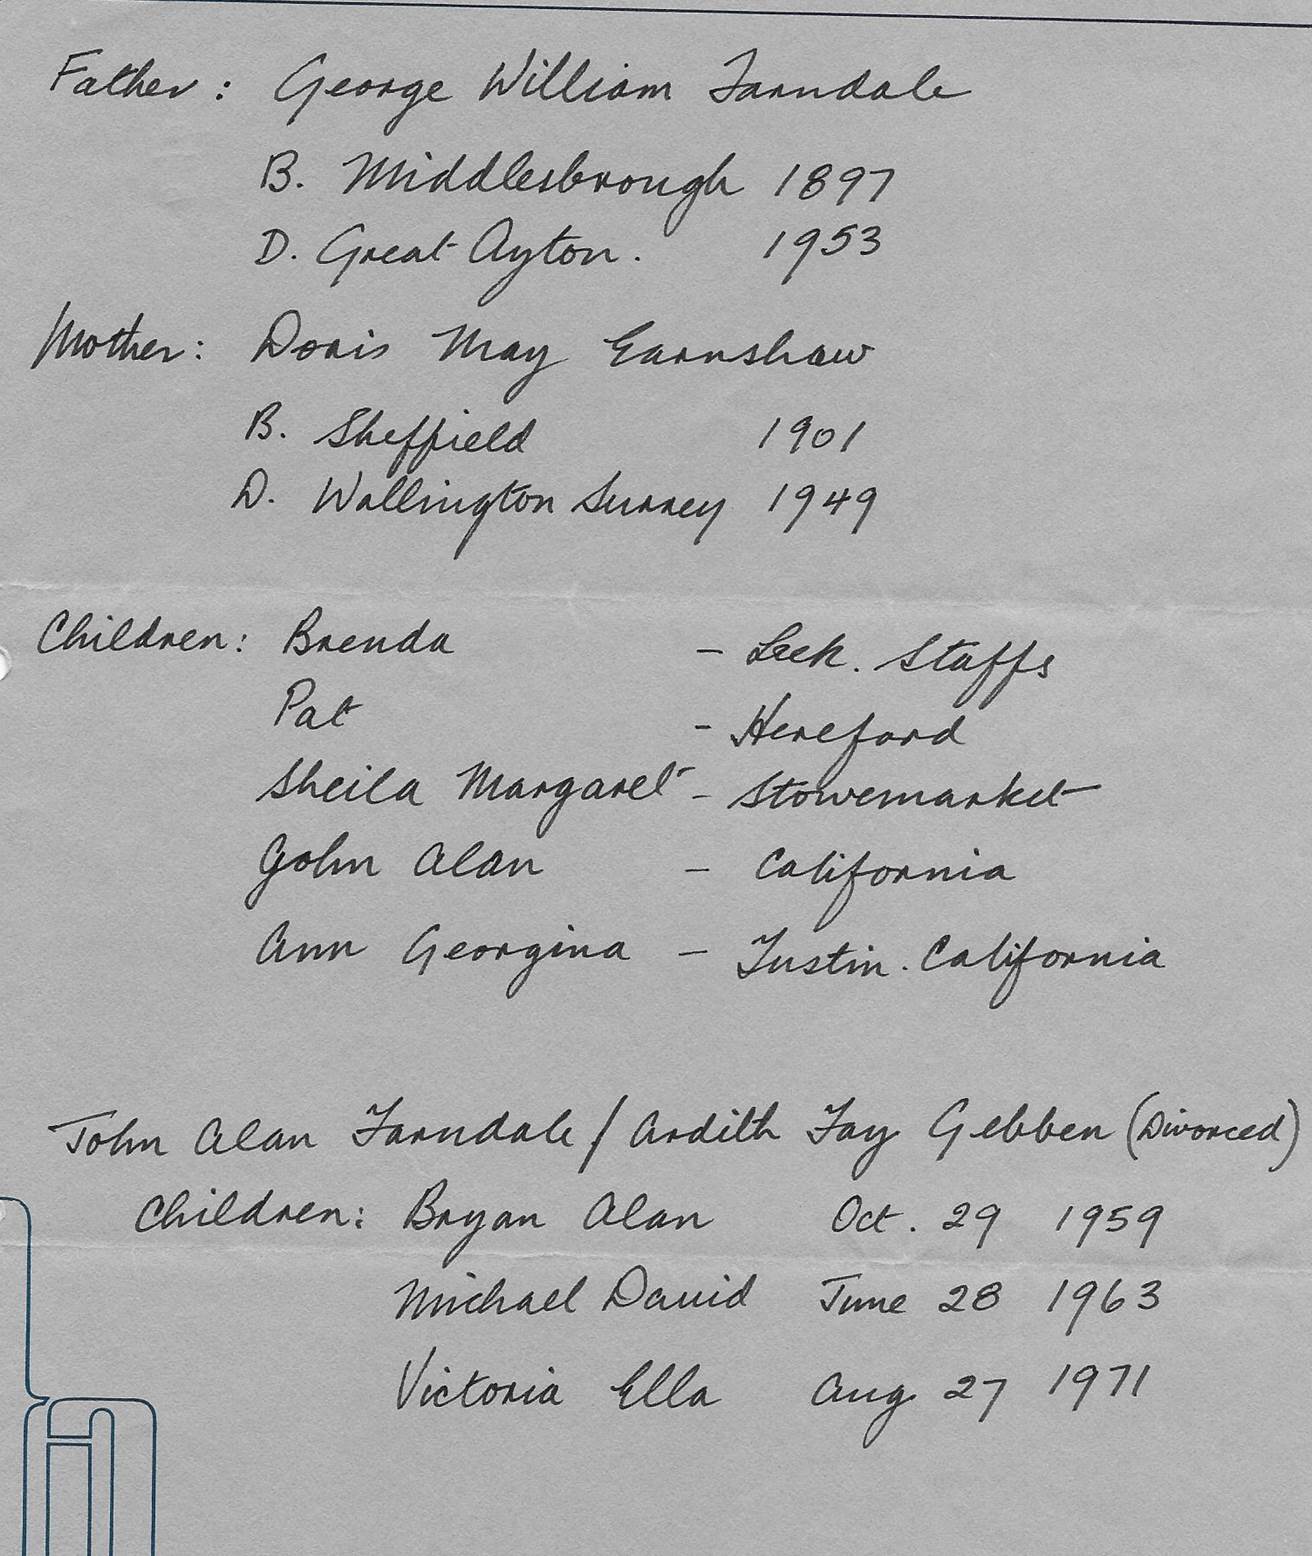 Father: George William Farndale
B. Middlesbrough 1897
D. Great Ayton. 1953
Mother: Doris May Earnshaw
B. Sheffield 1901
D. Wallington Surrey 1949
Children: Brenda - Leek. Staffs
Pat - Hereford
Sheila Margaret - Stowemarket
John Alan - California
Ann Georgina - Tustin. California
John Alan Farndale / Ardith Fay Gebben (Divorced)
Children: Bryan Alan Oct. 29 1959
Michael David June 28 1963
Victoria Ella Aug 27 1971